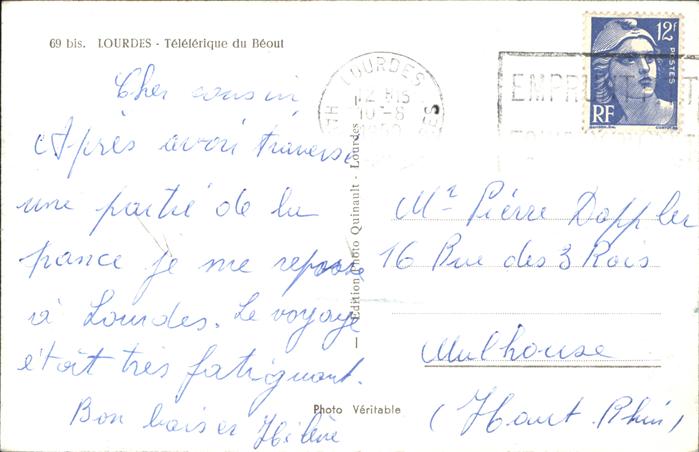 69 bis. LOURDES - Télélérique du Béout
Cher cousin,
Après avoir traversé
une partie de la
france je me repose
à Lourdes. Le voyage
était très fatiguant.
Bon baiser Hélène
Edition Photo Quinault - Lourdes
Photo Véritable
LOURDES
12 H15
10-8
12F
POSTES
RF
Mr Pierre Doppler
16 Rue des 3 Rois
Mulhouse
(Haut-Rhin)